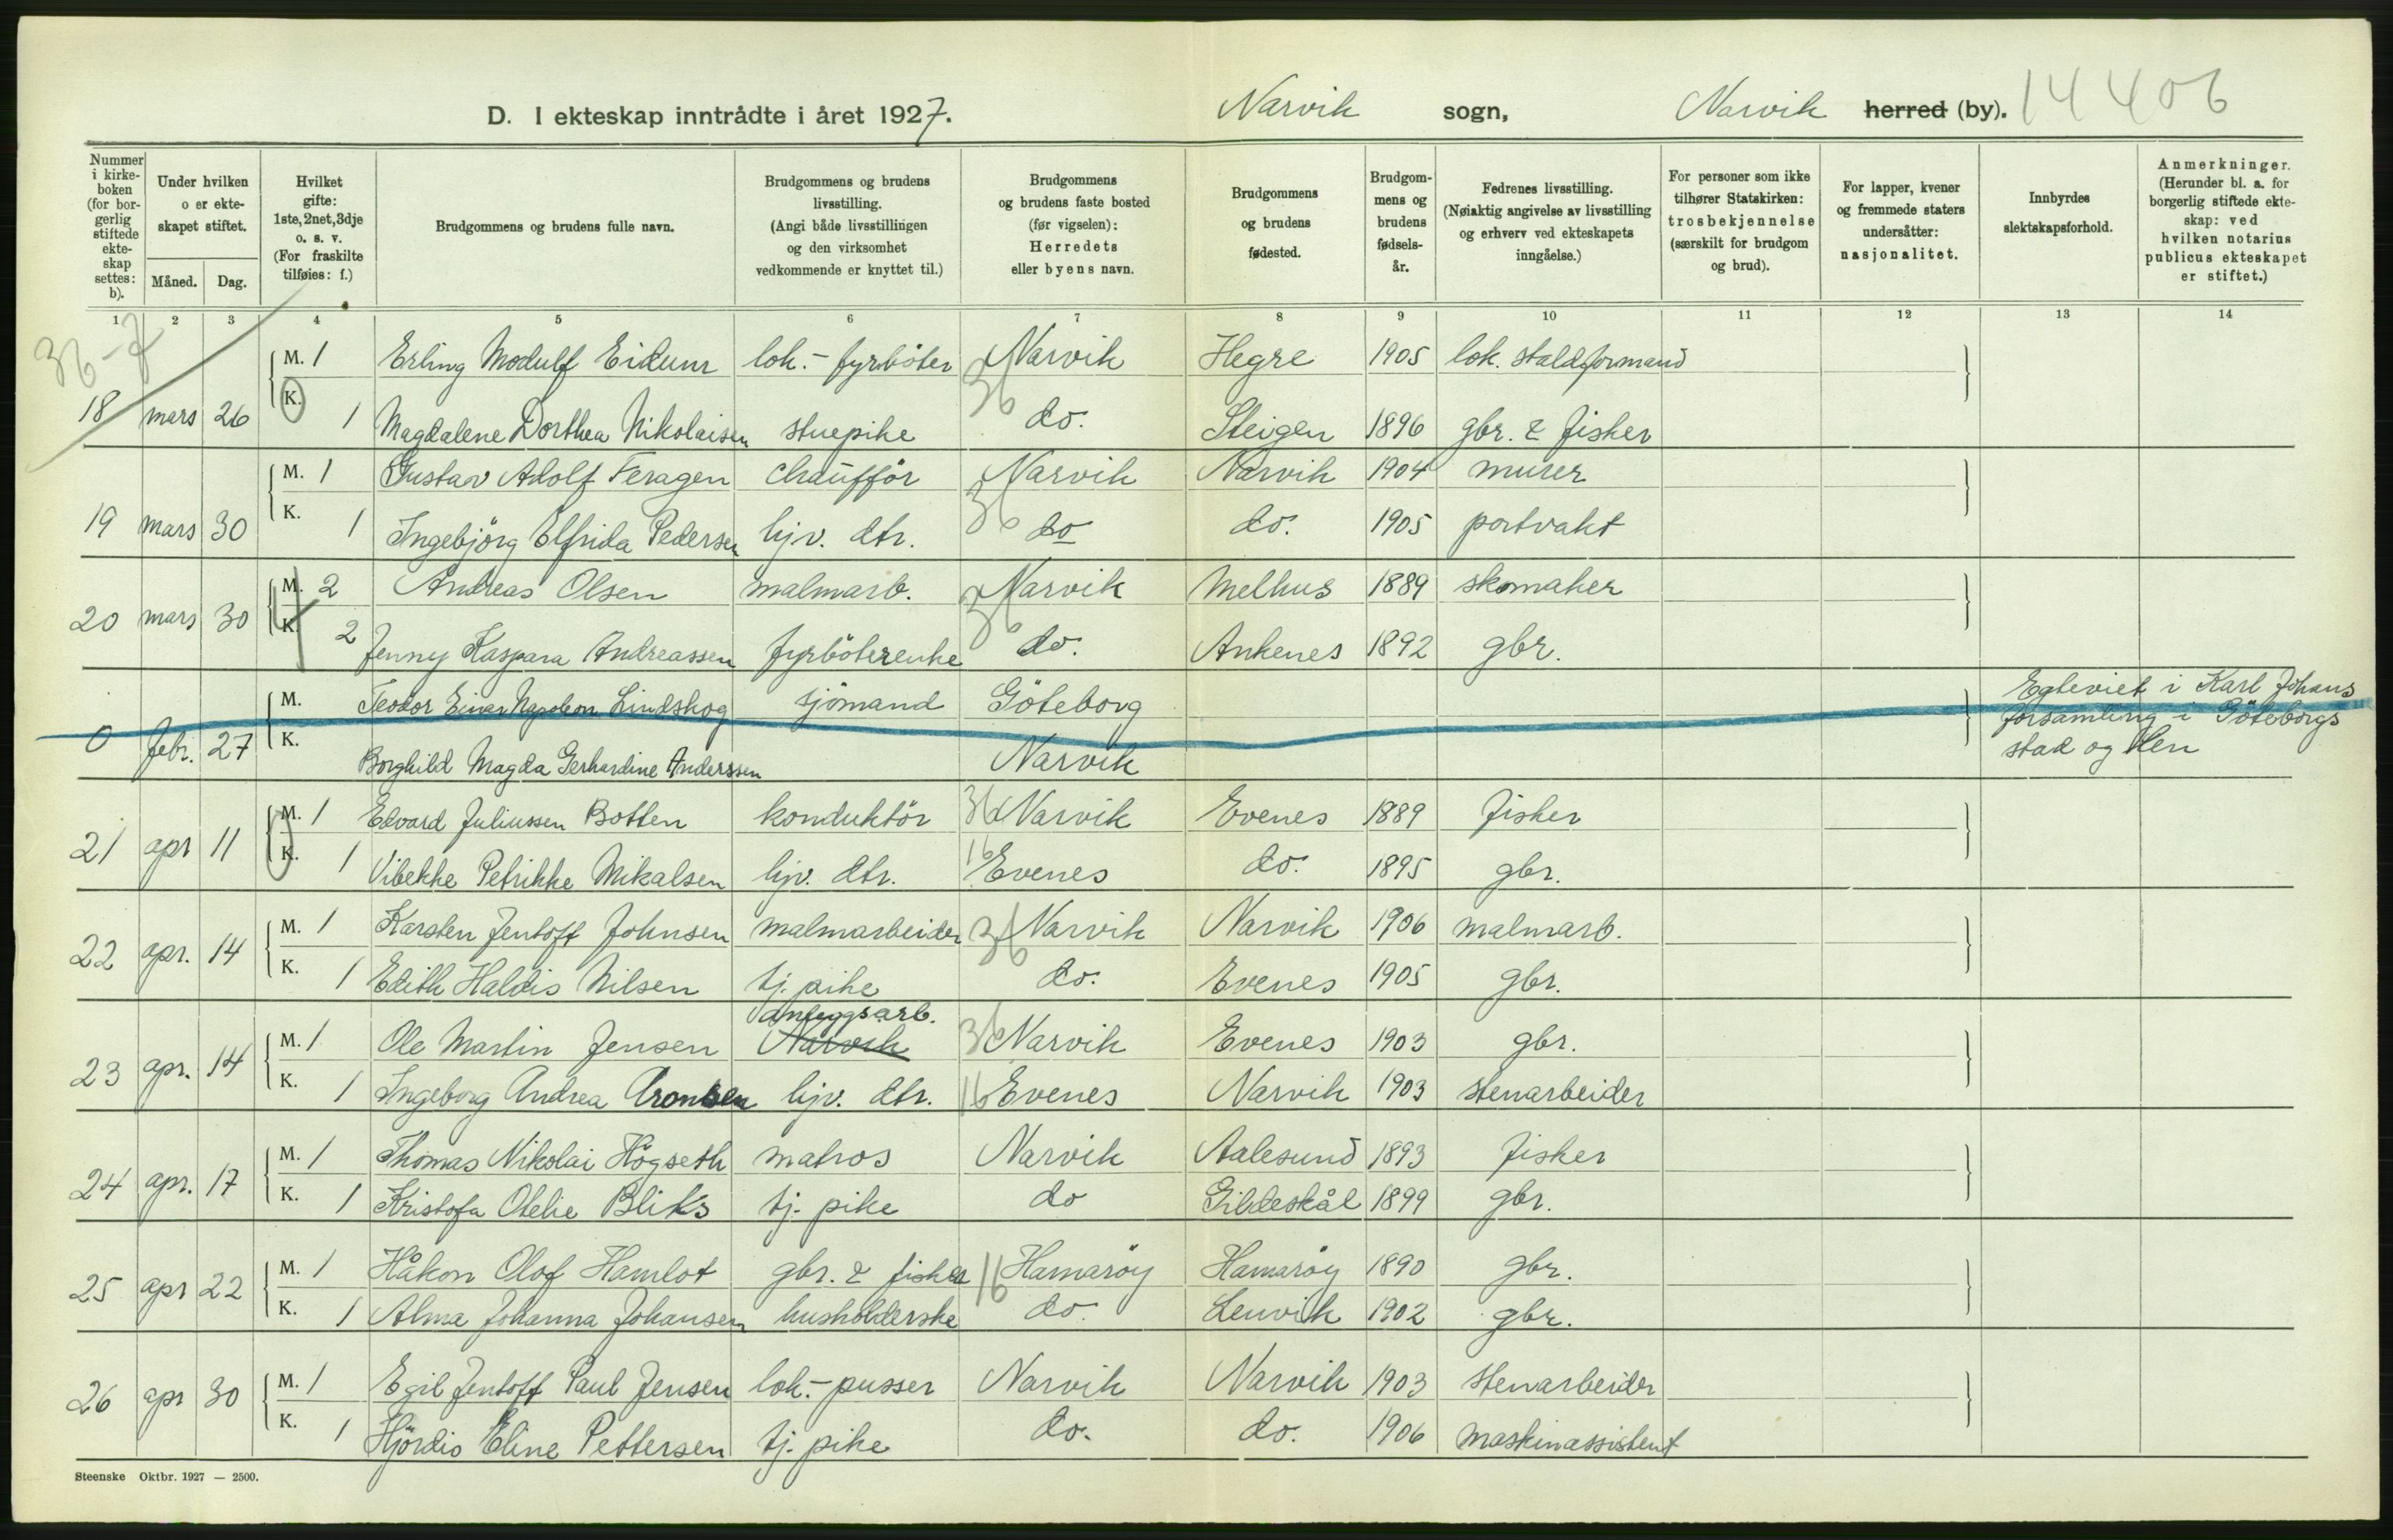 D. I ekteskap inntrådte i året 1927. Narvik sogn, Narvik herred (by). 14406
Nummer i kirke-boken (for bor-gerlig stiftede ekte-skap settes: b).
Under hvilken o er ekte-skapet stiftet.
Måned. Dag.
Hvilket gifte: 1ste, 2net, 3dje o. s. v. (For fraskilte tilføies: f.)
Brudgommens og brudens fulle navn.
Brudgommens og brudens livsstilling. (Angi både livsstillingen og den virksomhet vedkommende er knyttet til.)
Brudgommens og brudens faste bosted (før vigselen): Herredets eller byens navn.
Brudgommens og brudens fødested.
Brudgom-mens og brudens fødsels-år.
Fedrenes livsstilling. (Nøiaktig angivelse av livsstilling og erhverv ved ekteskapets inngåelse.)
For personer som ikke tilhører Statskirken: trosbekjennelse (særskilt for brudgom og brud).
For lapper, kvener og fremmede staters undersåtter: nasjonalitet.
Innbyrdes slektskapsforhold.
Anmerkninger. (Herunder bl. a. for borgerlig stiftede ekte-skap: ved hvilken notarius publicus ekteskapet er stiftet.)
1 2 3 4 5 6 7 8 9 10 11 12 13 14
36-7
M. 1 Erling Modulf Eidum lok.-fyrböter Narvik Hegre 1905 lok. staldformand
36
18 mars 26 K. 1 Magdalene Dorthea Nikolaisen stuepike do. Steigen 1896 gbr. & fisker
M. 1 Gustav Adolf Feragen chaufför Narvik Narvik 1904 murer
36
19 mars 30 K. 1 Ingebjörg Elfrida Pedersen hjv. dtr. do do. 1905 portvakt
M. 2 Andreas Olsen malmarb. Narvik Melhus 1889 skomaker
36
20 mars 30 K. 2 Jenny Kaspara Andreassen fyrböterenke do. Ankenes 1892 gbr.
M. Teodor Einar Napoleon Lindskog sjömand Göteborg Egteviet i Karl Johans
forsamling i Göteborgs
0 febr. 27 K. Borghild Magda Gerhardine Anderssen Narvik stad og len
M. 1 Edvard Juliussen Botten konduktör 36 Narvik Evenes 1889 fisker
21 apr 11 K. 1 Vibekke Petrikke Mikalsen hjv. dtr. 16 Evenes do. 1895 gbr.
M. 1 Karsten Jentoft Johnsen malmarbeider 36 Narvik Narvik 1906 malmarb.
22 apr. 14 K. 1 Edith Haldis Nilsen tj. pike do. Evenes 1905 gbr.
anleggsarb.
M. 1 Ole Martin Jensen Narvik 36 Narvik Evenes 1903 gbr.
23 apr. 14 K. 1 Ingeborg Andrea Aronsen hjv. dtr. 16 Evenes Narvik 1903 stenarbeider
M. 1 Thomas Nikolai Högseth matros Narvik Aalesund 1893 fisker
24 apr. 17 K. 1 Kristofa Otelie Bliks tj. pike do Gildeskål 1899 gbr.
M. 1 Håkon Olof Hamlot gbr. & fisker 16 Hamaröy Hamaröy 1890 gbr.
25 apr 22 K. 1 Alma Johanna Johansen husholderske do. Lenvik 1902 gbr.
M. 1 Egil Jentoft Paul Jensen lok.-pusser Narvik Narvik 1903 stenarbeider
26 apr 30 K. 1 Hjördis Eline Pettersen tj. pike do. do. 1906 maskinassistent
Steenske Oktbr. 1927 — 2500.